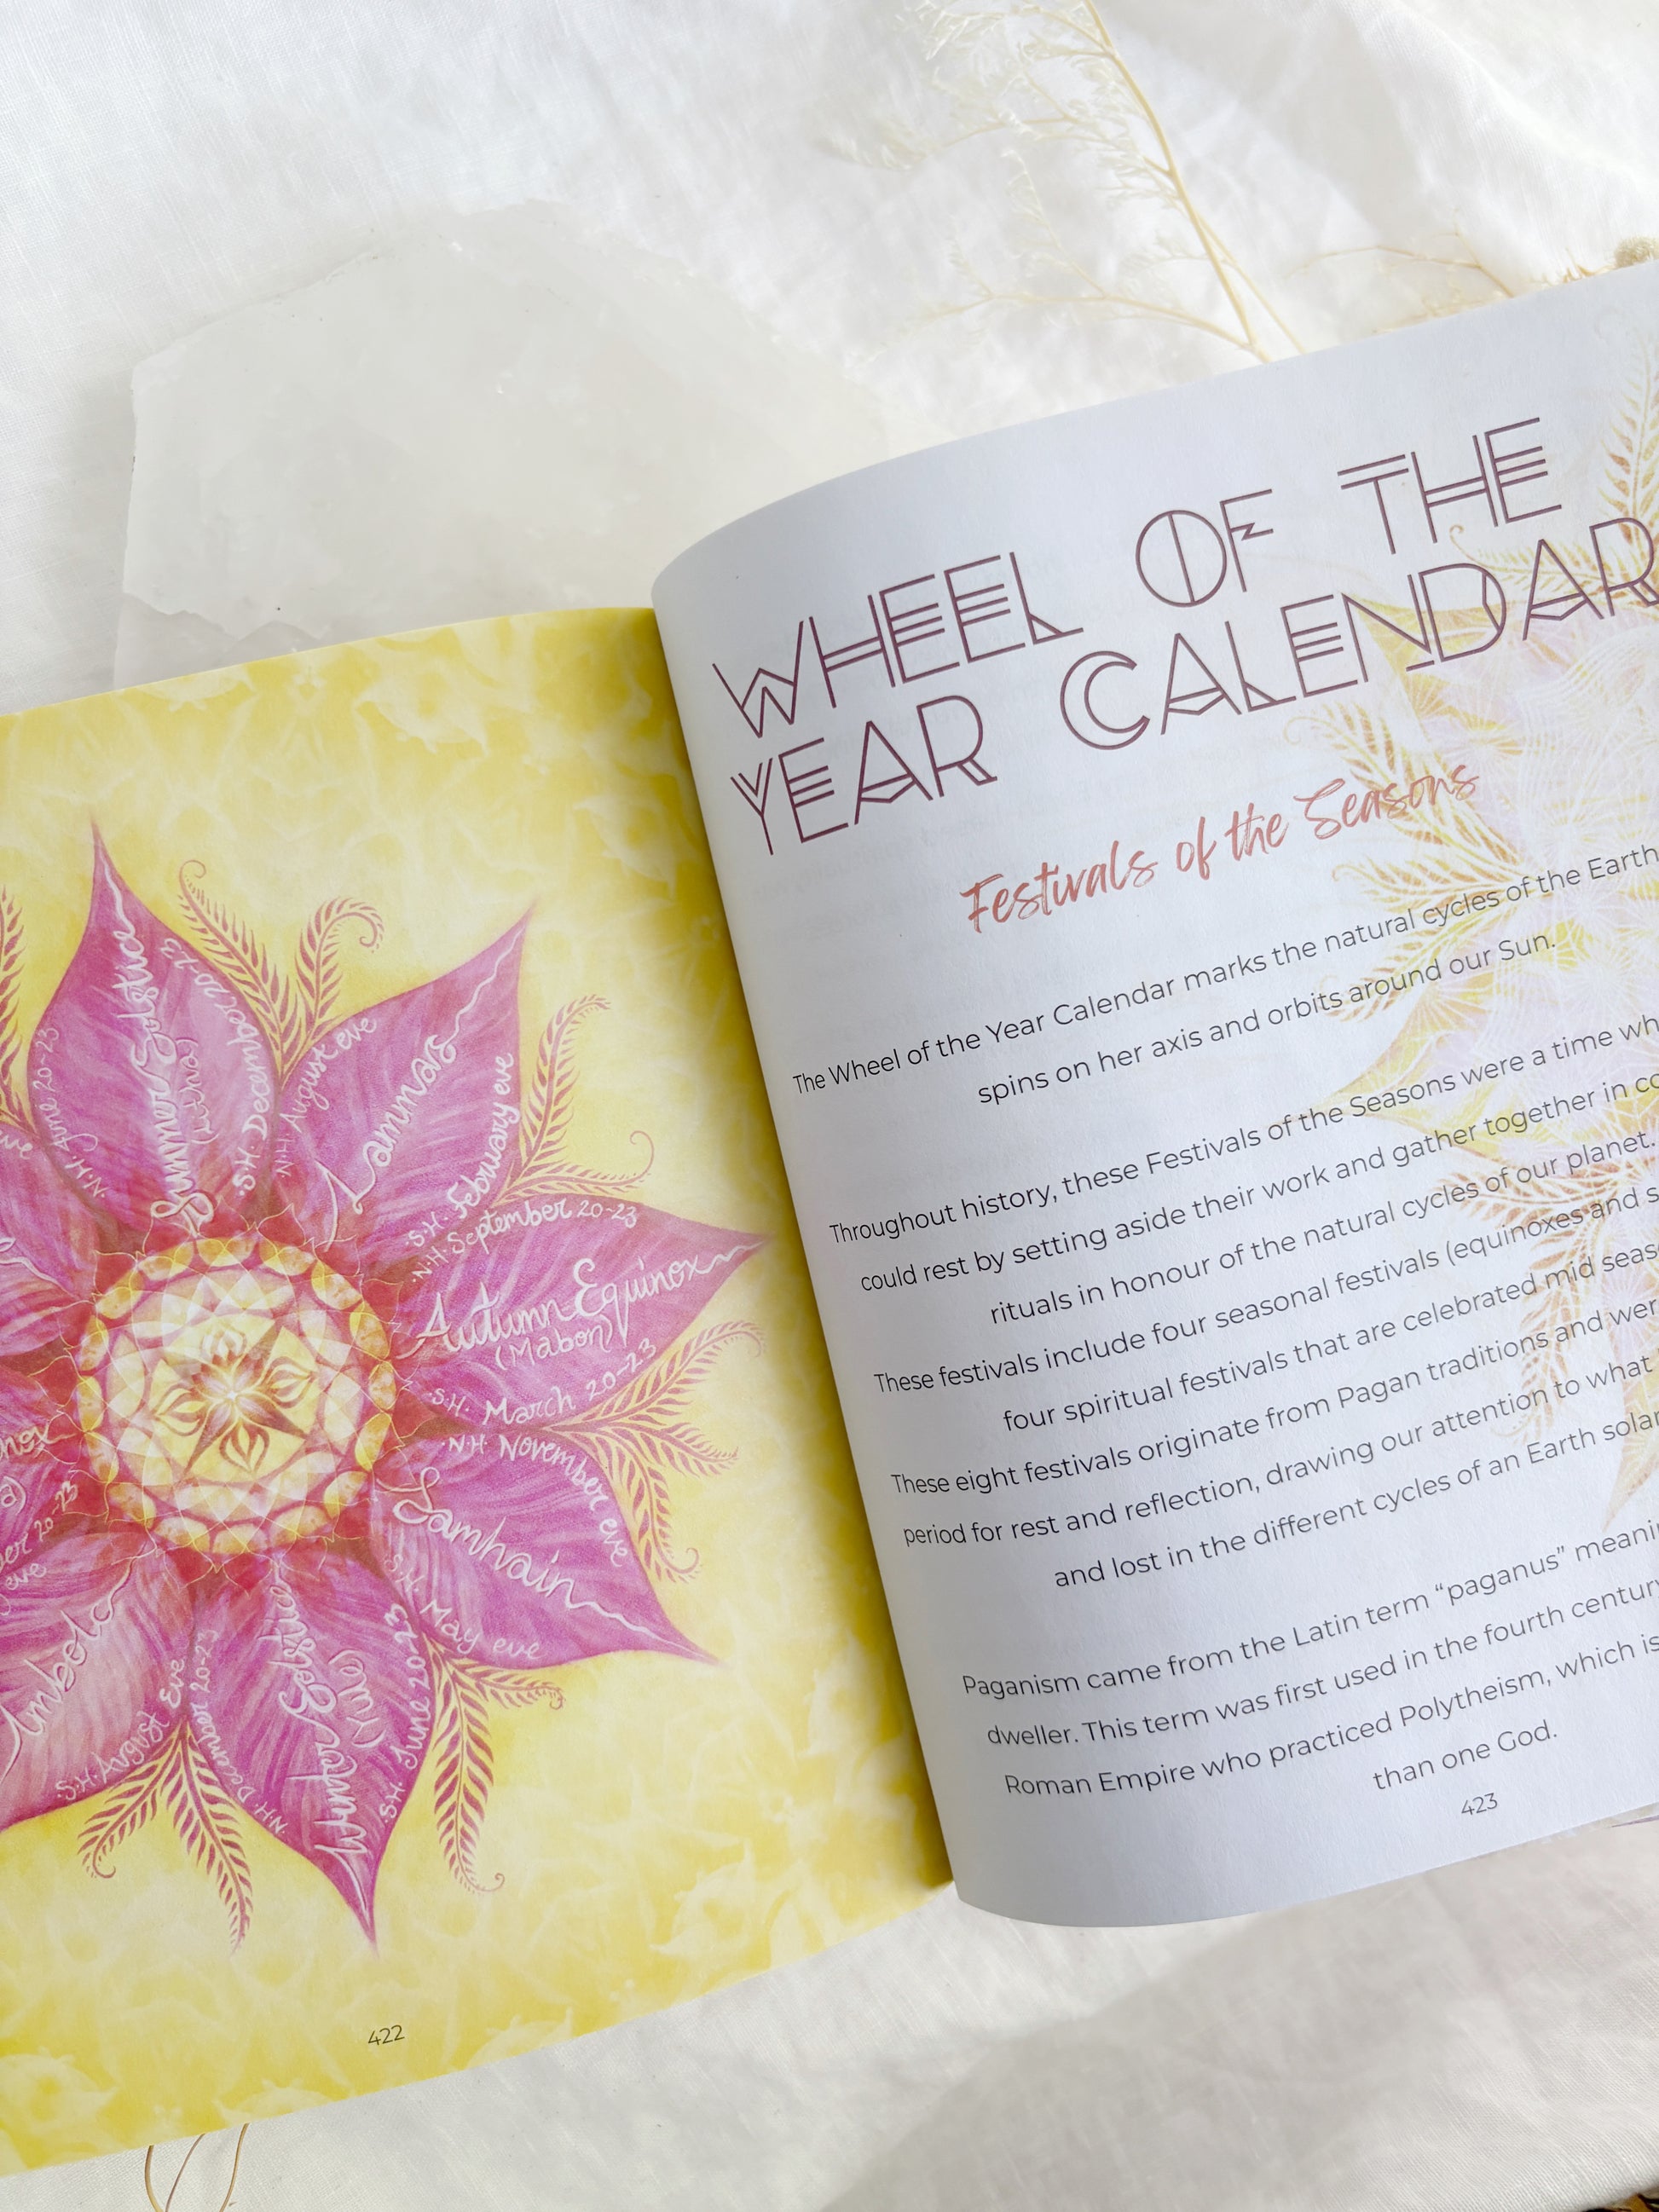 N.H. June 20-23
Summer Solstice
(Litha)
S.H. December 20-23
N.H. August eve
Lammas
S.H. February eve
N.H. September 20-23
Autumn Equinox
(Mabon)
S.H. March 20-23
N.H. November eve
Samhain
S.H. May eve
N.H. December 20-23
Winter Solstice
(Yule)
S.H. June 20-23
Imbolc
S.H. August Eve
20-23
eve
422
WHEEL OF THE
YEAR CALENDAR
Festivals of the Seasons
The Wheel of the Year Calendar marks the natural cycles of the Earth
spins on her axis and orbits around our Sun.
Throughout history, these Festivals of the Seasons were a time
could rest by setting aside their work and gather together in
rituals in honour of the natural cycles of our planet.
These festivals include four seasonal festivals (equinoxes and
four spiritual festivals that are celebrated mid
These eight festivals originate from Pagan traditions and
period for rest and reflection, drawing our attention to what
and lost in the different cycles of an Earth solar
Paganism came from the Latin term “paganus”
dweller. This term was first used in the fourth century
Roman Empire who practiced Polytheism, which is
than one God.
423